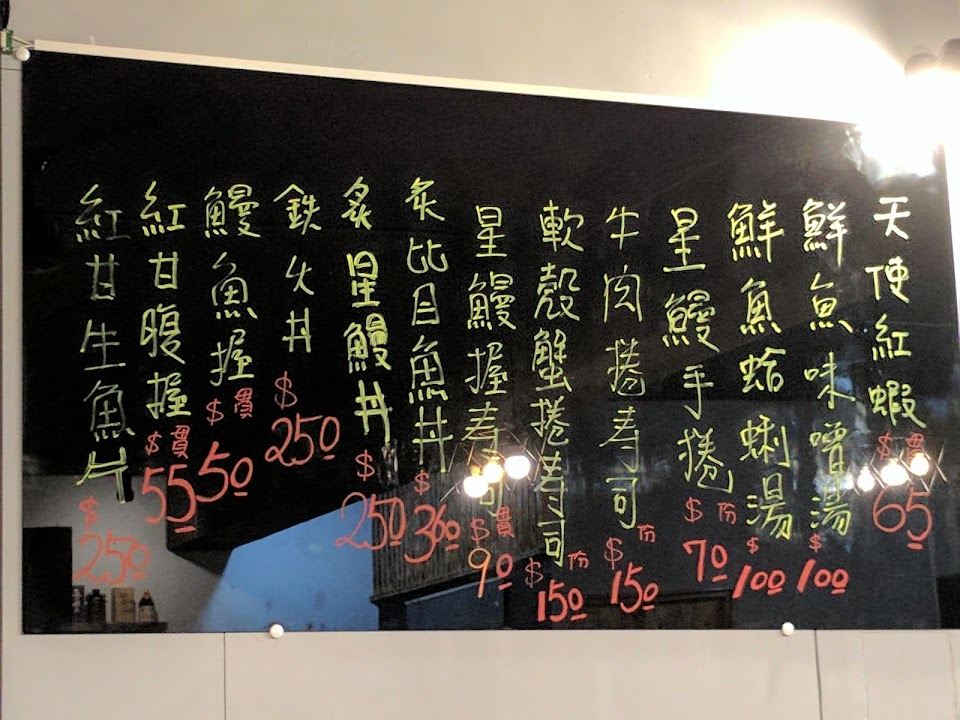 天使紅蝦 $貫 65
鮮魚味噌湯 $100
鮮魚蛤蜊湯 $100
星鰻手捲 $份 70
牛肉捲壽司 $份 150
軟殼蟹捲壽司 $份 150
星鰻握壽司 $貫 90
炙比目魚丼 $360
炙星鰻丼 $250
鉄火丼 $250
鰻魚握 $貫 50
紅甘腹握 $貫 55
紅甘生魚片 $250